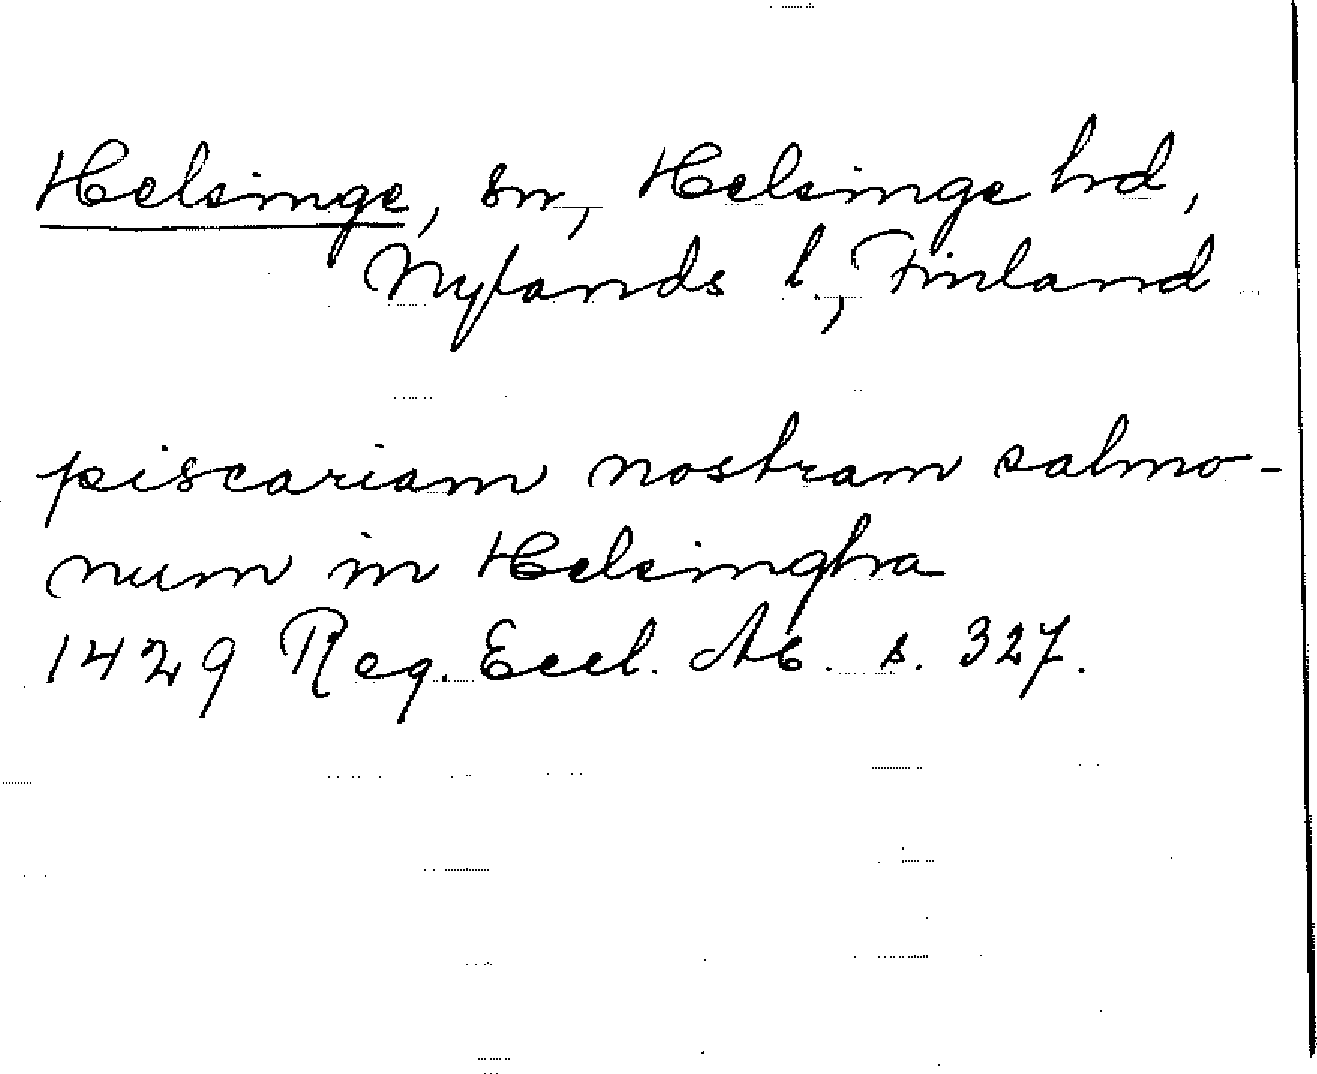 Helsinge, sn, Helsinge hd,
Nylands l, Finland
piscariam nostram salmo-
num in Helsingha
1429 Reg. Eccl. Ab. s. 327.